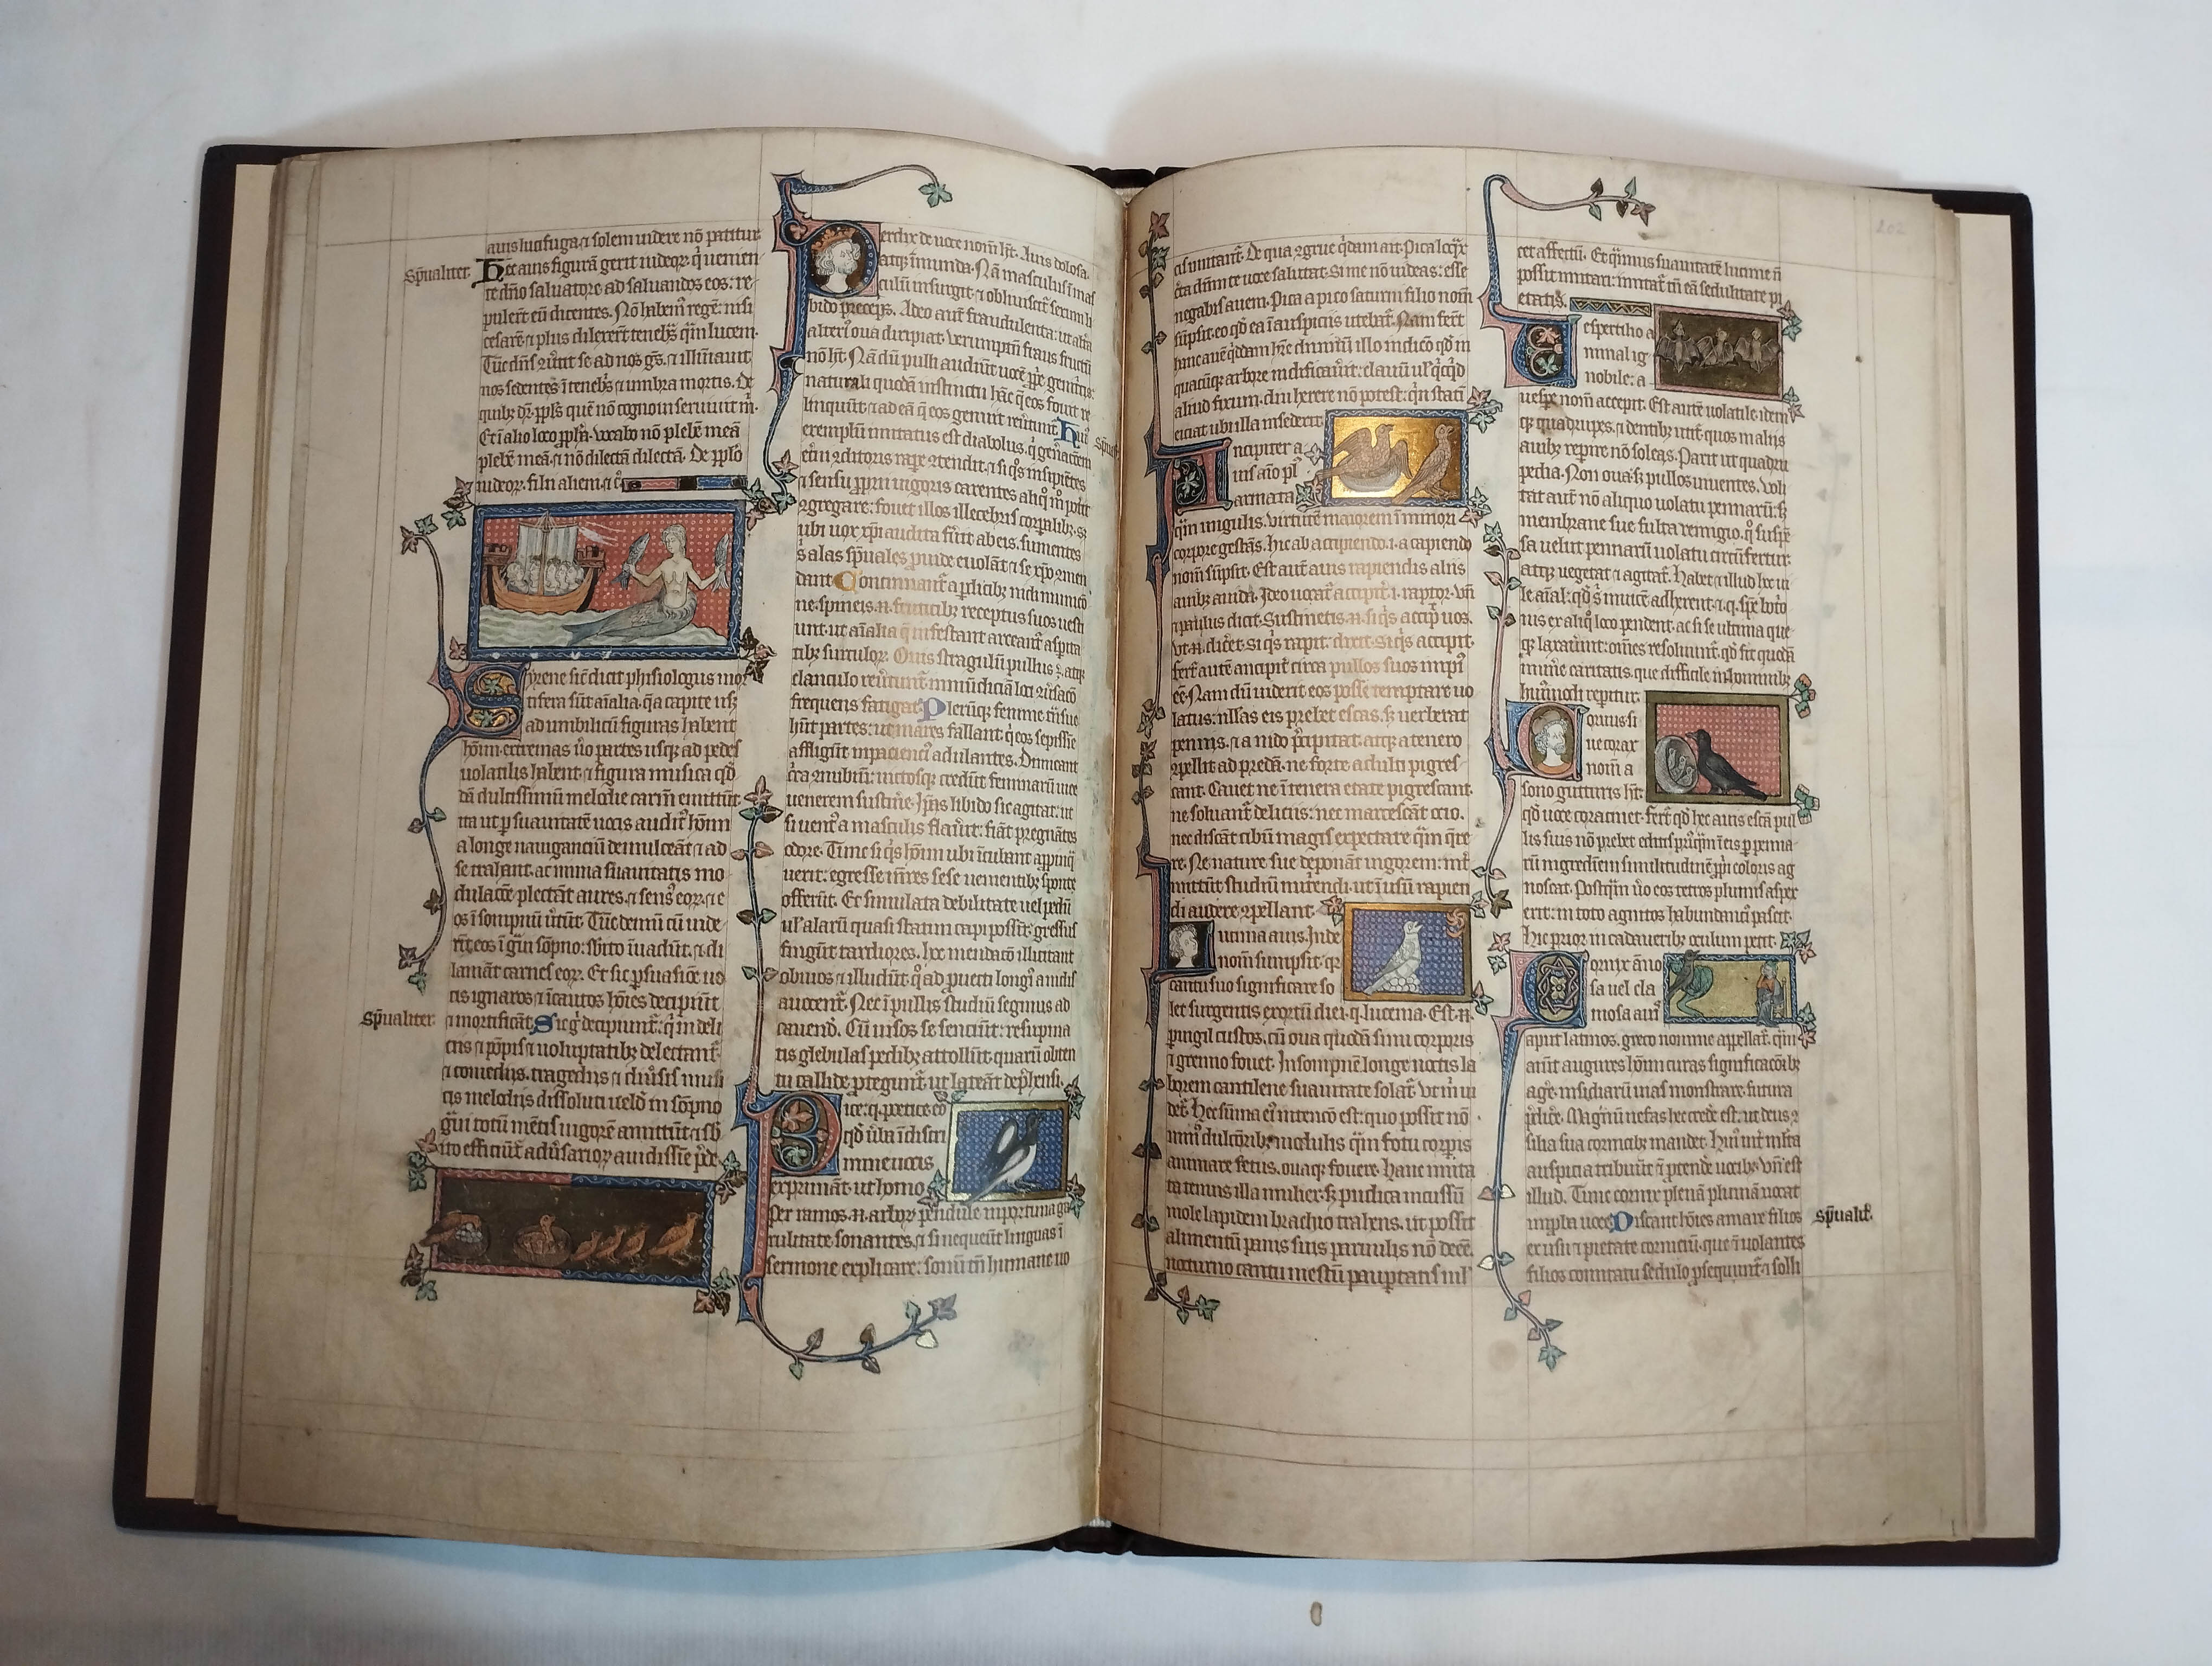 auis lucifuga. ⁊ solem uidere nō patitur
Sp̄ualiter. Hec auis figurā gerit iudeoꝝ. q̇ uenien
te dn̄o saluatore ad saluandos eos: re
pulerꝭt eū dicentes. Nō habemꝰ regē: nisi
cesarē: ⁊ plus dilexerꝭt tenebꝭs q̄m lucem.
nos sedentes ī tenebꝭs ⁊ umbra mortis. De
quibꝫ dꝛ. pp̄ls quē nō cognoui seruiuit m̄.
Et ī alio loco. uocabo nō plebē meā
plebē meā. ⁊ nō dilectā dilectā. De pp̄lo
iudeoꝝ. filii alieni. ⁊ c̄.
Syrene sic̄ dicit phisiologus mor
tifera sūt aīalia. q̄ a capite usꝫ
ad umbilicū figuras habent
hoīm. extremas ūo partes usꝫ ad pedes
uolatilis habent. ⁊ figura musica qd̄
dā dulcissimū melodie carm̄ emittūt.
ita ut ꝑ suauitatē uocis auditꝰ hoīm
a longe nauigantiū demulceāt ⁊ ad
se trahant. ac nimia suauitatis mo
dulacōe. plectāt aures. ⁊ sensꝰ eoꝝ. ⁊ ī
os ī sompnū ūtūt. Tūc demū cū uide
rīt eos ī g̃ui sōpno: sb̄ito īuadūt. ⁊ di
laniāt carnes eoꝝ. Et sic ꝑsuasiōe uo
cis ignaros ⁊ īcautos hoīes decipiūt
Sp̄ualiter. ⁊ mortificāt. Sic g̊ decipiunt̃: q̇ in deli
ciis ⁊ pōpis ⁊ uoluptatibꝫ delectant̃.
⁊ comediis. tragediis ⁊ diūsis musi
cis melodiis dissoluti uelđ in sōpno
g̃ui totū mētis uigorē amittūt. ⁊ sb̄
ito efficiūt̃ adūsarioꝝ auidissīe p̄de
Perdix de uoce nom̄ ħt. Auis dolosa.
atqꝫ īmunda. Nā masculus ī mas
culū insurgit. ⁊ obliuiscit̃ sexum li
bido preceps. Adeo aūt fraudulenta: ut alta
alterꝰ oua diripiat. uerumptn̄ fraus fructū
nō ħt. Nā dū pulli audiūt uocē ꝓprie genitꝭcis:
naturali quodā instinctu hāc q̄ eos fouit re
linquūt. ⁊ ad eā q̄ eos genuit reūtunt̃. Huiꝰ Sp̄ualit̃
exemplū imitatus est diabolus. q̇ gn̄acōem
etn̄i cōditoris rapꝭe cōtendit. ⁊ si q̇s insipiētes
⁊ sensu ꝓprii uigoris carentes aliq̊ m̊ potꝰit
cōgregare: fouet illos illecebris corꝑalibꝫ. Sꝫ
ubi uox xp̄i audita fūit ab eis. sumentes
s̄ alas sp̄uales. ꝓuide euolāt. ⁊ se xp̄o cōmen
dant. Concinnant̃ a ꝑdicibꝫ nidi municō
ne. spineis. n̄. fruticibꝫ receptus suos uesti
unt. ut aīalia q̄ infestant arceant̃ asꝑita
tibꝫ surculoꝝ. Ouis stragulū puluis ē. atqꝫ
clanculo reūtunt̃.
frequens fatigat. Plerūqꝫ femine tn̄sue
hūt partes: ut mares fallant. q̇ eos sepissīe
affligūt inpaciencꝰ adulantes. Dimicant̃
c̄ca cōnubiū: uictosqꝫ credūt feminarū uice
uenerem sustinē. Ip̄as libido sic agitat: ut
si uentꝰ a masculis flauꝭt: fiāt pregnātes
odore. Tunc si q̇s hoīm ubi īcubant appinq̄
uerit: egresse mr̄es sese uenientibꝫ sponte
offerūt. Et simulata debilitate uel pedū
ul̛ alarū quasi statim capi possīt: gressus
fingūt tardiores. Hoc mendacō illicitant
obuios. ⁊ illudūt. q̊ad prouecti longiꝰ a nidis
auocent̃. Nec ī pullis studiū segnius ad
cauendū. Cū uisos se senciūt: resupina
tis glebulas pedibꝫ attollūt. quarū obten
tu callide ꝓtegunt̃. ut lateāt dep̄hensi.
Pice: q. poetice eo
qd̄ ūba ī distri
mine uocis
exprimāt. ut homo
Per ramos. n̄. arboꝝ pendule inportuna ga
rulitate sonantes. ⁊ si nequeūt linguas ī
sermone explicare: sonū tn̄ humane uo
202
cis imitant̃. De qua cōgrue q̇dam ait. Pica loq̄x
certa dn̄um te uoce salutat. Si me nō uideas: esse
negabis auem. Pica a pico saturni filio nom̄
sūpsit. eo qd̄ ea ī auspiciis utebat̃. Nam ferūt
huic auē q̇dam hr̄e diuinitū illo indico qd̄ in
quacūqꝫ arbore nidificauꝭt: clauū ul̛ q̇cq̇d
aliud fixum. diu herere nō potest: q̇n stati
eiciat ubi illa insederit.
Ancipiter a
uis aīo pl̛
armata
q̄m ungulis. uirtutē maiorem ī minori
corpore gestās. hic ab accipiendo. i. a capiendo
nom̄ sūpsit. Est aūt auis rapiendis aliis
auibꝫ auida. Ideo uocat̃ accipit̃. i. raptor. Vn̄
⁊ paulus dicit. Sustinetis. n̄. si q̇s accip̄ uos.
Vt. n̄. dicꝭet. Si q̇s rapit: dixit. Si q̇s accipit.
fert̃ autē ancipit̃ circa pullos suos impiꝰ
eē. Nam dū uiderit eos posse temptare uo
latus: nll̛as eis prebet escas. Sꝫ uerberat
pennis. ⁊ a nido p̄cipitat. atqꝫ a tenero
cōpellit ad predā. ne forte adulti pigres
cant. Cauet ne ī tenera etate pigrescant.
ne soluant̃ deliciis: nec marcescāt ocio.
nec discāt cibū magis expectare q̄m q̄re
re. Ne nature sue deponāt uigorem: int̃
mittūt studiū nutꝭendi. ut ī usū rapien
di audere cōpellant.
Lucinia auis. Inde
nom̄ sumpsit. qꝛ
cantu suo significare so
let surgentis exortū diei. q. lucenia. Est. n̄.
ꝑuigil custos. cū oua quodā sinu corporis
⁊ gremio fouet. Insompnē longe noctis la
borem cantilene suauitate solat̃. Vt m̄ ui
det̃. Hec sūma eiꝰ intencō est: quo possit nō
minꝰ dulcōribꝫ modulis q̄m fotu corꝑis
animare fetus. ouaqꝫ fouere. Hanc imita
ta tenuis illa mulier. Sꝫ pudica incussū
mole lapidem brachio trahens. ut possit
alimentū panis suis paruulis nō deēē.
nocturno cantu mestū pauꝑtatis mul̛
cet affectū. Et q̄muis suauitatē lucinie n̄
possit imitari: imitat̃ tn̄ eā sedulitate pi
etatis.
Vespertilio a
nimal ig
nobile: a
uespe nom̄ accepit. Est autē uolatile idem
qꝫ quadrupes. ⁊ dentibꝫ utit̃. quos in aliis
auibꝫ repire nō soleas. Parit ut quadru
pedia. Non oua. Sꝫ pullos uiuentes. Voli
tat aut̃ nō aliquo uolatu pennarū: Sꝫ
membrane sue fulta remigio. q̊ suspē
sa uelut pennarū uolatu circūfertur.
atqꝫ uegetat̃ ⁊ agitat̃. Habet ⁊ illud hoc ui
le aīal: qd̄ sꝭ inuicē adherent. ⁊. q. spē botro
nis ex aliq̊ loco pendent. ac si se ultima que
qꝫ laxauꝭint: omēs resoluunt̃. qd̄ fit quodā
mun̄e caritatis. que difficile in hominibꝫ
huiꝰmodi repitur.
Coruus si
ue corax
nom̄ a
sono gutturis ħt:
qd̄ uoce coracinet. fert̃ qd̄ hec auis escā pul
lis suis nō prebet editis pꝭusq̄m ī eis ꝑ penna
rū nigredinem similitudinē ꝓprii coloris ag
noscat. Postq̄m ūo eos tetros plumis aspex
erit: in toto agnitos habundanciꝰ pascit.
hic prior in cadaueribꝫ oculum petit.
Cornix āno
sa uel ela
mosa auiꝰ
apud latinos. greco nomine appellat̃. Q̄m
aiūt augures hoīm curas significacōibꝫ
agꝭe. insidiarū uias monstrare. futura
p̄dicꝭe. Magnū nefas hec credꝭe est. ut deus cō
silia sua cornicibꝫ mandet. Huic int̃ ml̛ta
auspicia tribuūt ⁊ p̄tendꝭe uocibꝫ. Vn̄ est
illud. Tunc cornix plenā pluuiā uocat
improba uoce. Discant hoīes amare filios Sp̄ualit̃.
ex usu ⁊ pietate cornicū. que ⁊ uolantes
filios comitatu sedulo ꝓsequunt̃. ⁊ solli